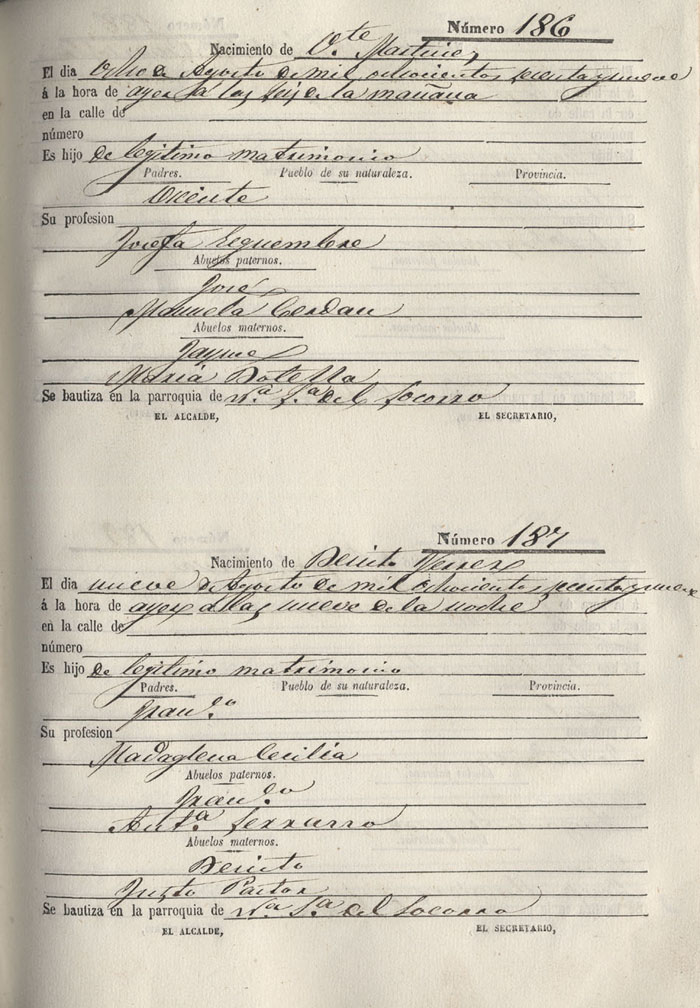 Número 186
Nacimiento de V.te Martinez
El dia ocho de Agosto de mil ochocientos sesenta y nueve
á la hora de ayer a las seis de la mañana
en la calle de
número
Es hijo de legitimo matrimonio
Padres. Pueblo de su naturaleza. Provincia.
Vicente
Su profesion
Josefa
Abuelos paternos.
José
Manuela Cerdan
Abuelos maternos.
Jayme
Maria Botella
Se bautiza en la parroquia de N.a S.a del Socorro
EL ALCALDE, EL SECRETARIO,
Número 187
Nacimiento de Benito
El dia nueve de Agosto de mil ochocientos sesenta y nueve
á la hora de ayer a las nueve de la noche
en la calle de
número
Es hijo de legitimo matrimonio
Padres. Pueblo de su naturaleza. Provincia.
Fran.co
Su profesion
Madaglena Cecilia
Abuelos paternos.
Fran.co
Ant.a
Abuelos maternos.
Benito
Justa Pastor
Se bautiza en la parroquia de N.a S.a del Socorro
EL ALCALDE, EL SECRETARIO,